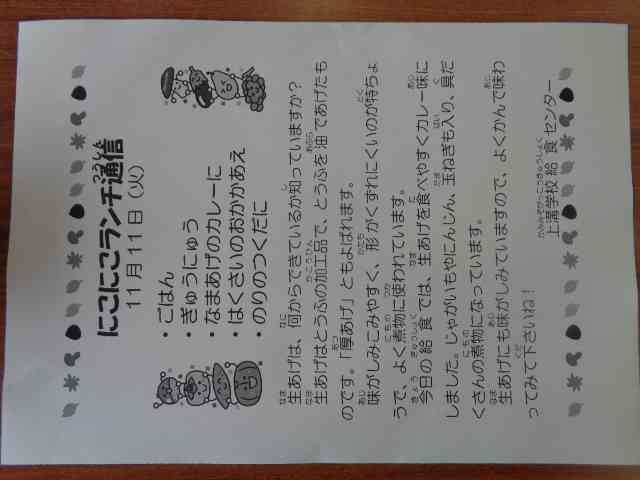 にこにこランチ通信
11月11日（火）
・ごはん
・ぎゅうにゅう
・なまあげのカレーに
・はくさいのおかかあえ
・のりのつくだに
生あげは、何からできているか知っていますか？
生あげはとうふの加工品で、とうふを油であげたも
のです。「厚あげ」ともよばれます。
味がしみこみやすく、形がくずれにくいのが特ちょ
うで、よく煮物に使われています。
今日の給食では、生あげを食べやすくカレー味に
しました。じゃがいもやにんじん、玉ねぎも入り、具だ
くさんの煮物になっています。
生あげにも味がしみていますので、よくかんで味わ
ってみて下さいね！
上溝学校給食センター